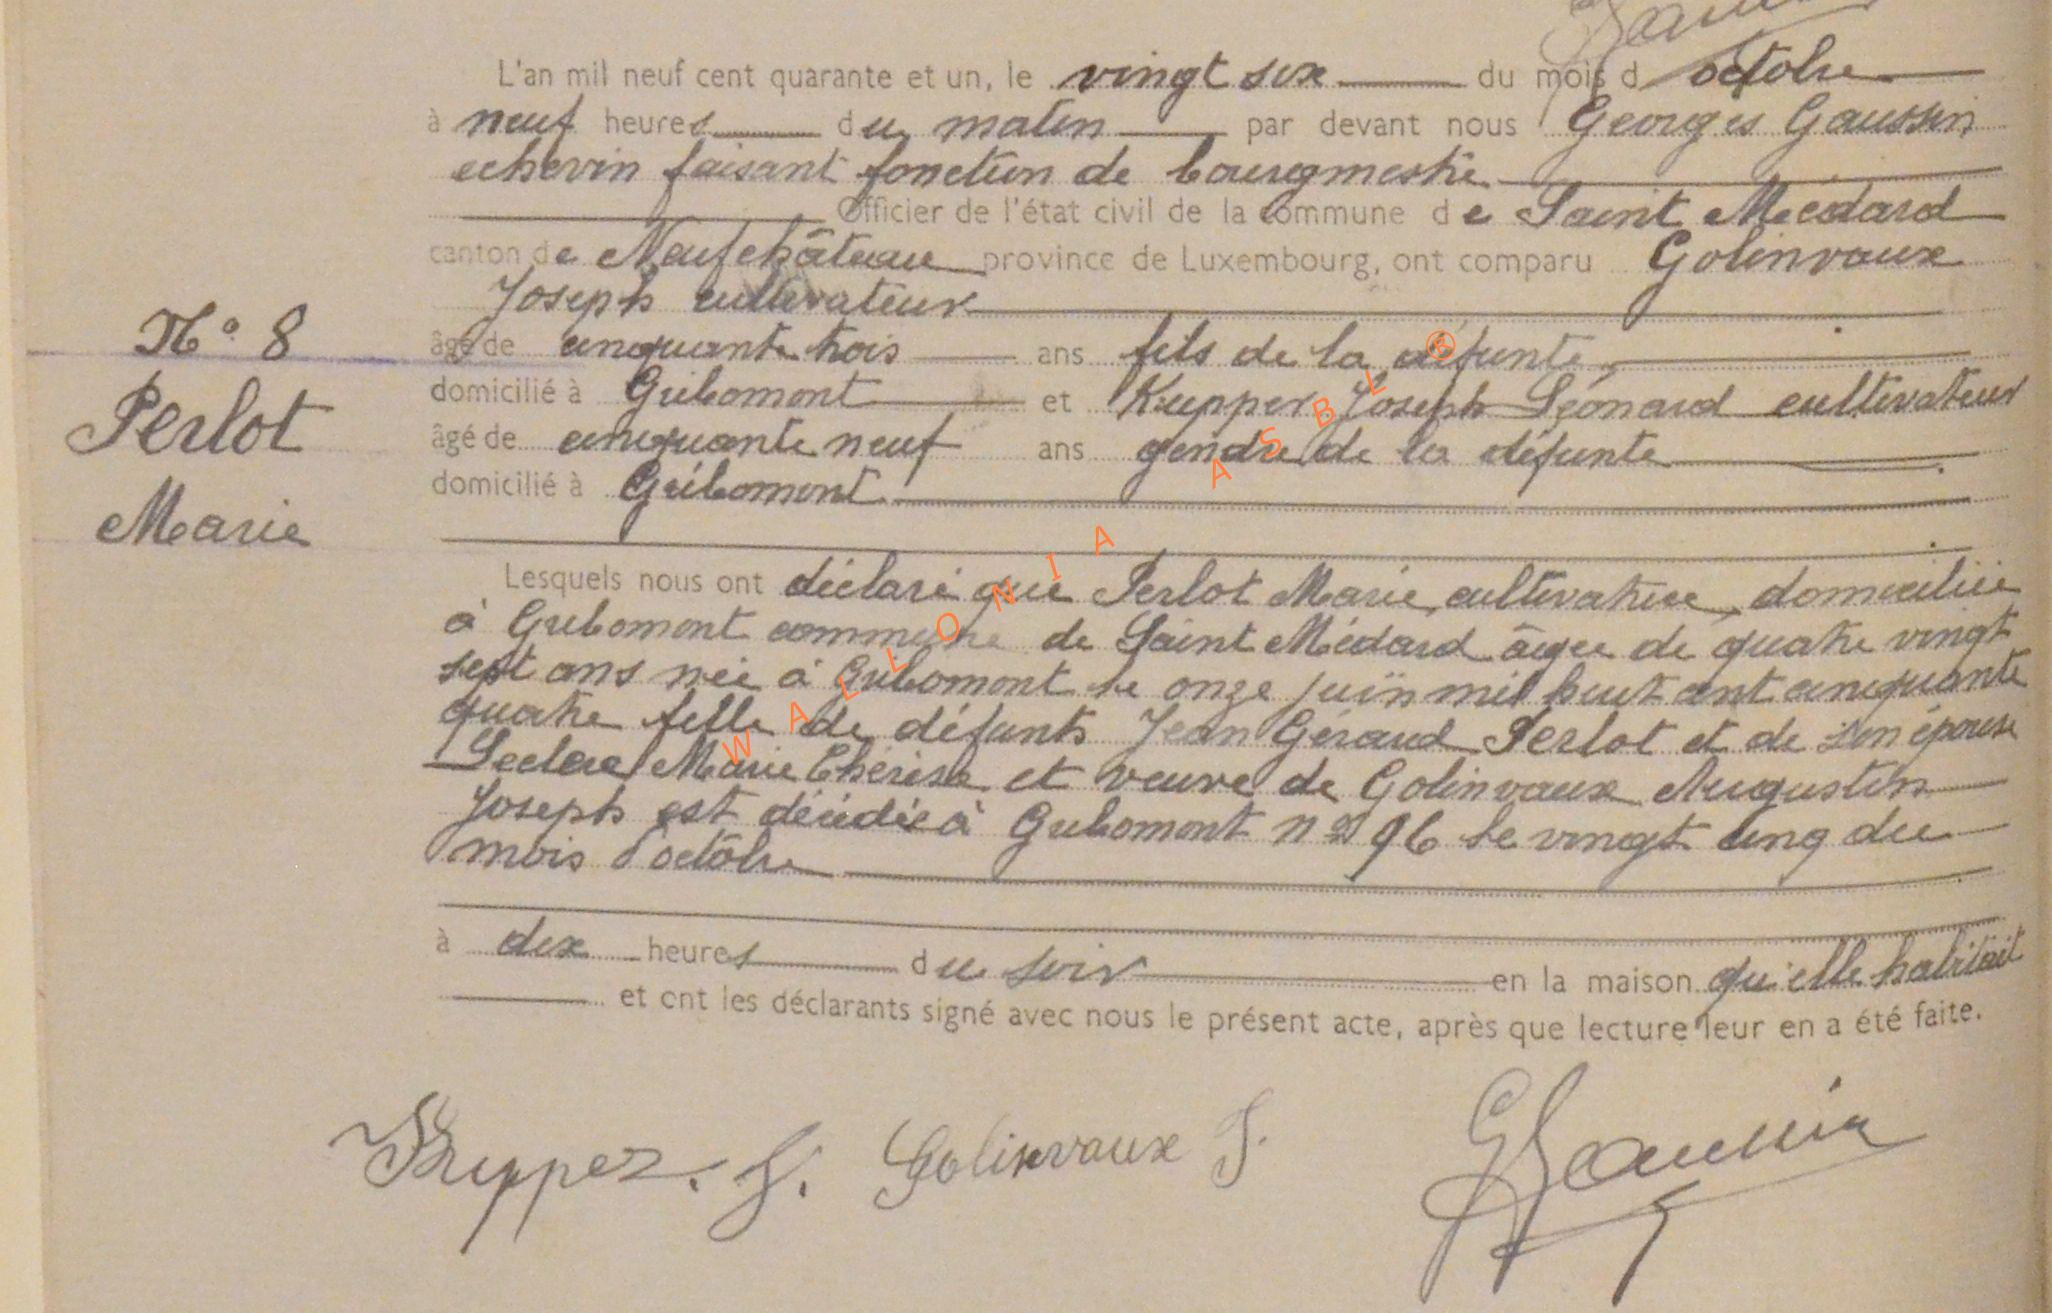 L'an mil neuf cent quarante et un, le vingt six du mois d octobre
à neuf heures du matin par devant nous Georges Gaussin
echevin faisant fonction de bourgmestre
Officier de l'état civil de la commune de Saint Médard
canton de Neufchâteau province de Luxembourg, ont comparu Golinvaux
Joseph cultivateur
N° 8
âgé de cinquante trois ans fils de la défunte
domicilié à Gribomont et Kupper Joseph Léonard cultivateur
Perlot
âgé de cinquante neuf ans gendre de la défunte
domicilié à Gribomont
Marie
Lesquels nous ont déclaré que Perlot Marie, cultivatrice, domiciliée
à Gribomont commune de Saint Médard âgée de quatre vingt
sept ans née à Gribomont le onze juin mil huit cent cinquante
quatre fille de défunts Jean Géraud Perlot et de son épouse
Leclere Marie Thérèse et veuve de Golinvaux Augustin
Joseph est décédée à Gribomont n° 96 le vingt cinq du
mois d'octobre
à dix heures du soir en la maison qu'elle habitait
et ont les déclarants signé avec nous le présent acte, après que lecture leur en a été faite.
Kupper. J. Golinvaux J. G Gaussin
WALLONIA ASBL ®